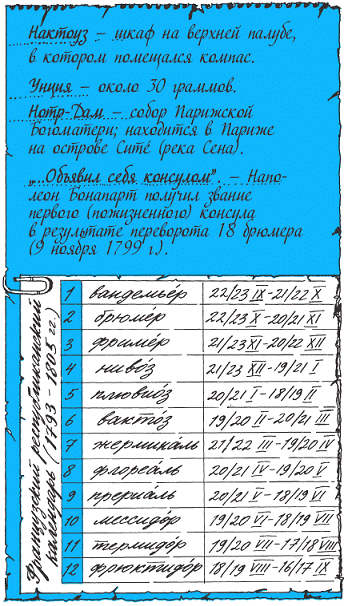 Нактоуз – шкаф на верхней палубе,
в котором помещался компас.
Унция – около 30 граммов.
Нотр-Дам – собор Парижской
Богоматери; находится в Париже
на острове Сите́ (река Сена).
„Объявил себя консулом". – Напо-
леон Бонапарт получил звание
первого (пожизненного) консула
в результате переворота 18 брюмера
(9 ноября 1799 г.).
Французский республиканский
календарь (1793 - 1805 гг.)
1 вандемье́р 22/23 IX - 21/22 X
2 брюме́р 22/23 X - 20/21 XI
3 фриме́р 21/23 XI - 20/22 XII
4 ниво́з 21/23 XII - 19/21 I
5 плювио́з 20/21 I - 18/19 II
6 вакто́з 19/20 II - 20/21 III
7 жермика́ль 21/22 III - 19/20 IV
8 флореа́ль 20/21 IV - 19/20 V
9 прериа́ль 20/21 V - 18/19 VI
10 мессидо́р 19/20 VI - 18/19 VII
11 термидо́р 19/20 VII - 17/18 VIII
12 фрюктидо́р 18/19 VIII - 16/17 IX